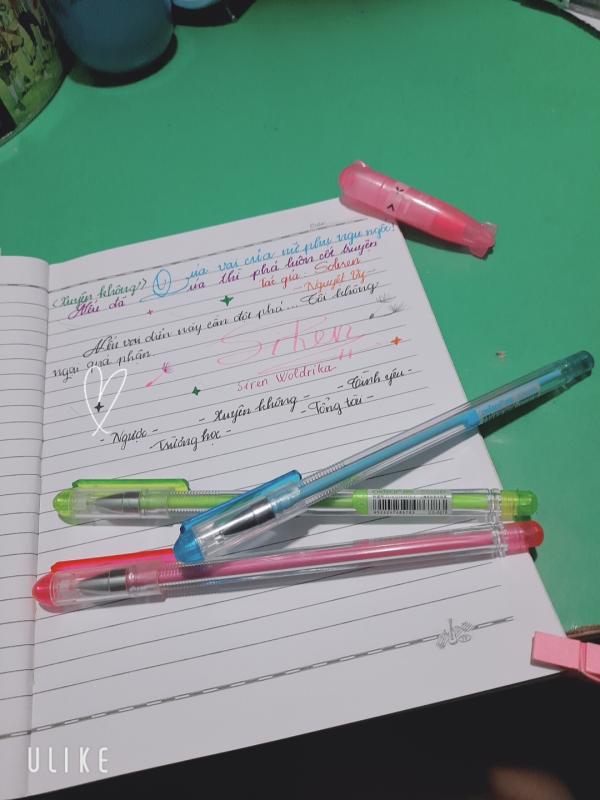 (Xuyên không!) Quá vai của nữ phụ ngu ngốc!
Nếu đã quá thì phá luôn cốt truyện
tác giả: Schren
Nguyệt Vy
Nếu vai diễn này cần đột phá... Tôi không
ngại quá phận
Srhén
Siren Woldrika
- Ngược - - Xuyên không - - Thanh yêu -
- Trường học - - Tổng tài -
ULIKE